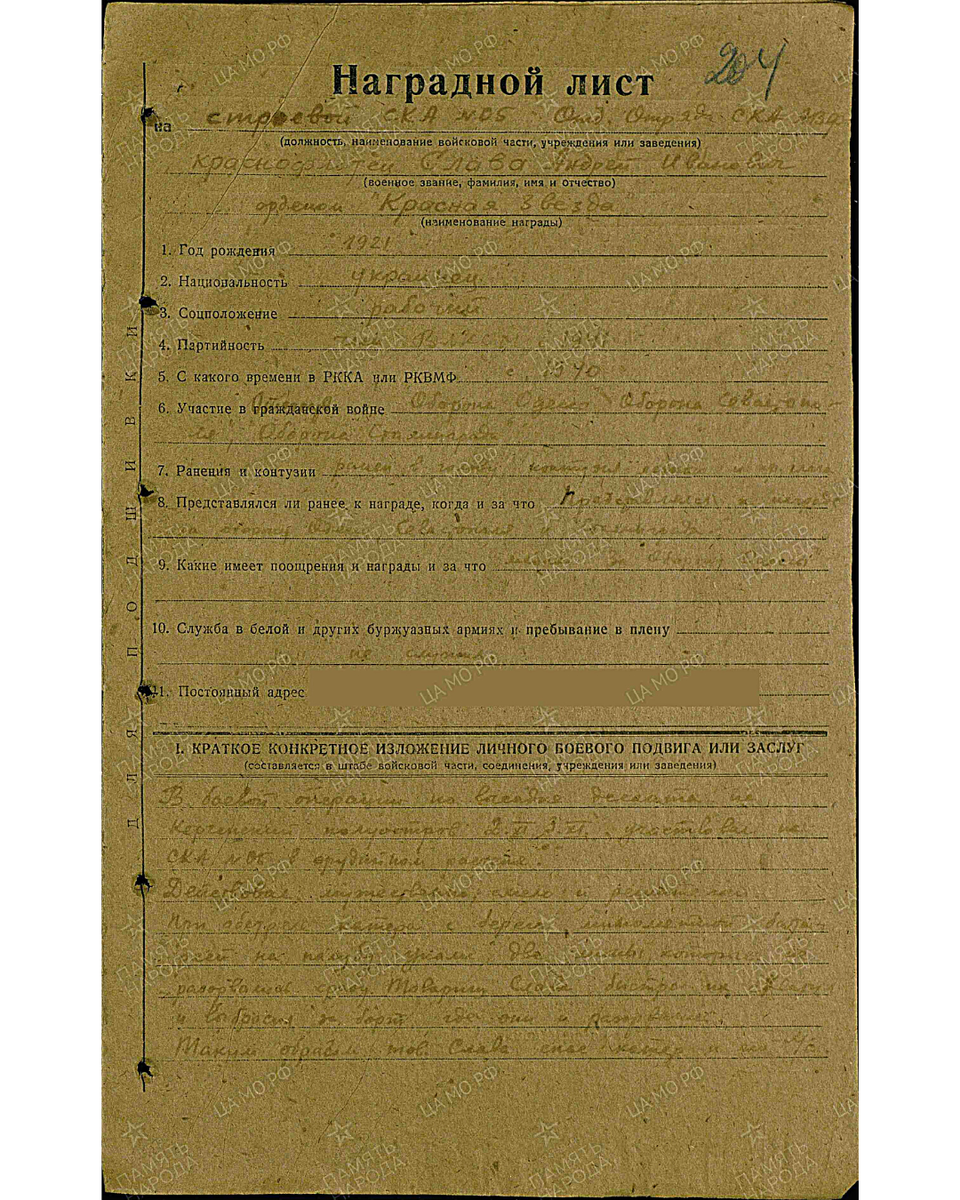 204
Наградной лист
на строевой СКА №05 Отряда СКА
(должность, наименование войсковой части, учреждения или заведения)
краснофлотец Слава Андрей Иванович
(военное звание, фамилия, имя и отчество)
орденом "Красная Звезда"
(наименование награды)
1. Год рождения 1921
2. Национальность украинец
3. Соцположение рабочий
4. Партийность член 1941
5. С какого времени в РККА или РКВМФ с 1940
6. Участие в гражданской войне Оборона Одессы, Оборона Севастопо-
ля, "Оборона Сталинграда"
7. Ранения и контузии ранен в
8. Представлялся ли ранее к награде, когда и за что Представлялся к награде
за оборону Севастополя
9. Какие имеет поощрения и награды и за что медаль "За Оборону Одессы"
10. Служба в белой и других буржуазных армиях и пребывание в плену
не служил
11. Постоянный адрес
I. КРАТКОЕ КОНКРЕТНОЕ ИЗЛОЖЕНИЕ ЛИЧНОГО БОЕВОГО ПОДВИГА ИЛИ ЗАСЛУГ
(составляется в штабе войсковой части, соединения, учреждения или заведения)
В боевой операции по высадке десанта на
Керченский полуостров 2.XI 3.XI. участвовал на
СКА №05 в орудийном расчете.
Действовал мужественно, смело и решительно
При обстреле катера с берега минометной бата-
реей на палубу упали две мины которые не
разорвались сразу. Товарищ Слава быстро их схватил
и выбросил за борт где они и разорвались.
Таким образом тов. Слава спас катер и его л/с
ДЛЯ ПОДШИВКИ